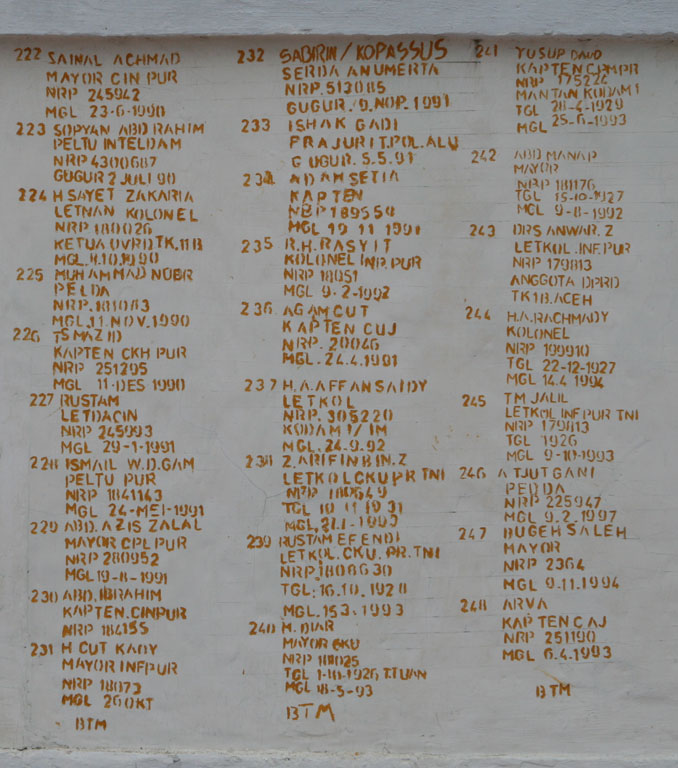 222 SAINAL ACHMAD
MAYOR CIN PUR
NRP 245942
MGL 23-6-1990
223 SOPYAN ABD RAHIM
PELTU INTELDAM
NRP 4300687
GUGUR 2 JULI 90
224 H.SAYET ZAKARIA
LETNAN KOLONEL
NRP 180026
KETUA DVRD TK.11 B
MGL.4.10.1990
225 MUHAMMAD NOBR
PELDA
NRP.181083
MGL.11.NOV.1990
226 TS MAZ ID
KAPTEN CKH PUR
NRP 251295
MGL 11-DES 1990
227 RUSTAM
LETDACIN
NRP 245993
MGL 29-1-1991
228 ISMAIL W.D.GAM
PELTU PUR
NRP 1841143
MGL 24-MEI-1991
229 ABD.AZIS ZALAL
MAYOR CPL PUR
NRP 280952
MGL 19-8-1991
230 ABD.IBRAHIM
KAPTEN.CINPUR
NRP 184155
231 H CUT KAOY
MAYOR INFPUR
NRP 18073
MGL 26 OKT
BTM
232 SABIRIN/KOPASSUS
SERDA ANUMERTA
NRP.513085
GUGUR.9.NOP.1991
233 ISHAK GADI
PRAJURIT.POL.ALU
GUGUR.5.5.91
234 ADAM SETIA
KAPTEN
NRP 189550
MGL 19 11 1991
235 R.H.RASYIT
KOLONEL INP.PUR
NRP 18051
MGL 9-2-1992
236 AGAM CUT
KAPTEN CUJ
NRP. 20046
MGL.24.4.1991
237 H.A.AFFAN SAIDY
LETKOL
NRP.305220
KODAM I/IM
MGL.24.9.92
238 Z.ARIFIN BIN.Z
LETKOL CKU PR TNI
NRP 180649
TGL 10 11 1931
MGL,21.1-1993
239 RUSTAM EFENDI
LETKOL.CKU.PR.TNI
NRP.1806630
TGL:16.10.1928
MGL.153.1993
240 H.DIAR
MAYOR CKU
NRP 181025
TGL 1-10-1926 T.TUAN
MGL 18-5-93
BTM
241 YUSUP DAUD
KAPTEN CPM PR
NRP 175224
MANTAN KODAM I
TGL 28-4-1929
MGL 25-6-1993
242 ABD MANAP
MAYOR
NRP 181176
TGL 15-10-1927
MGL 9-8-1992
243 DRS ANWAR.Z
LETKOL.INF.PUR
NRP 179813
ANGGOTA DPRD
TK 1 B.ACEH
244 H.A.RACHMADY
KOLONEL
NRP 199910
TGL 22-12-1927
MGL 14.4 1994
245 TM JALIL
LETKOL INF PUR TNI
NRP 179813
TGL 1926
MGL 9-10-1993
246 A TJUT GANI
PELDA
NRP 225947
MGL 9.2.1997
247 BUGEH SALEH
MAYOR
NRP 2364
MGL 9.11.1994
248 ARVA
KAPTEN CAJ
NRP 251190
MGL 6.4.1993
BTM